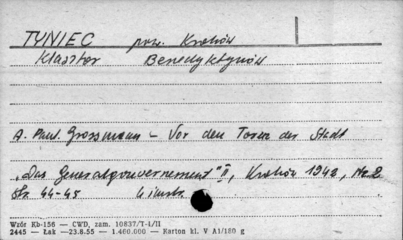 TYNIEC pow. Kraków
Klasztor Benedyktynów
A. Paul. Grossmann – Vor den Toren der Stadt
„Das Generalgouvernement" II, Kraków 1942, Nr. 2
Str. 44-45 4 ilustr.
Wzór Kb-156 — CWD, zam. 10837/T-4/II
2445 — Łak —23.8.55 — 1.460.000 — Karton kl. V A1/180 g